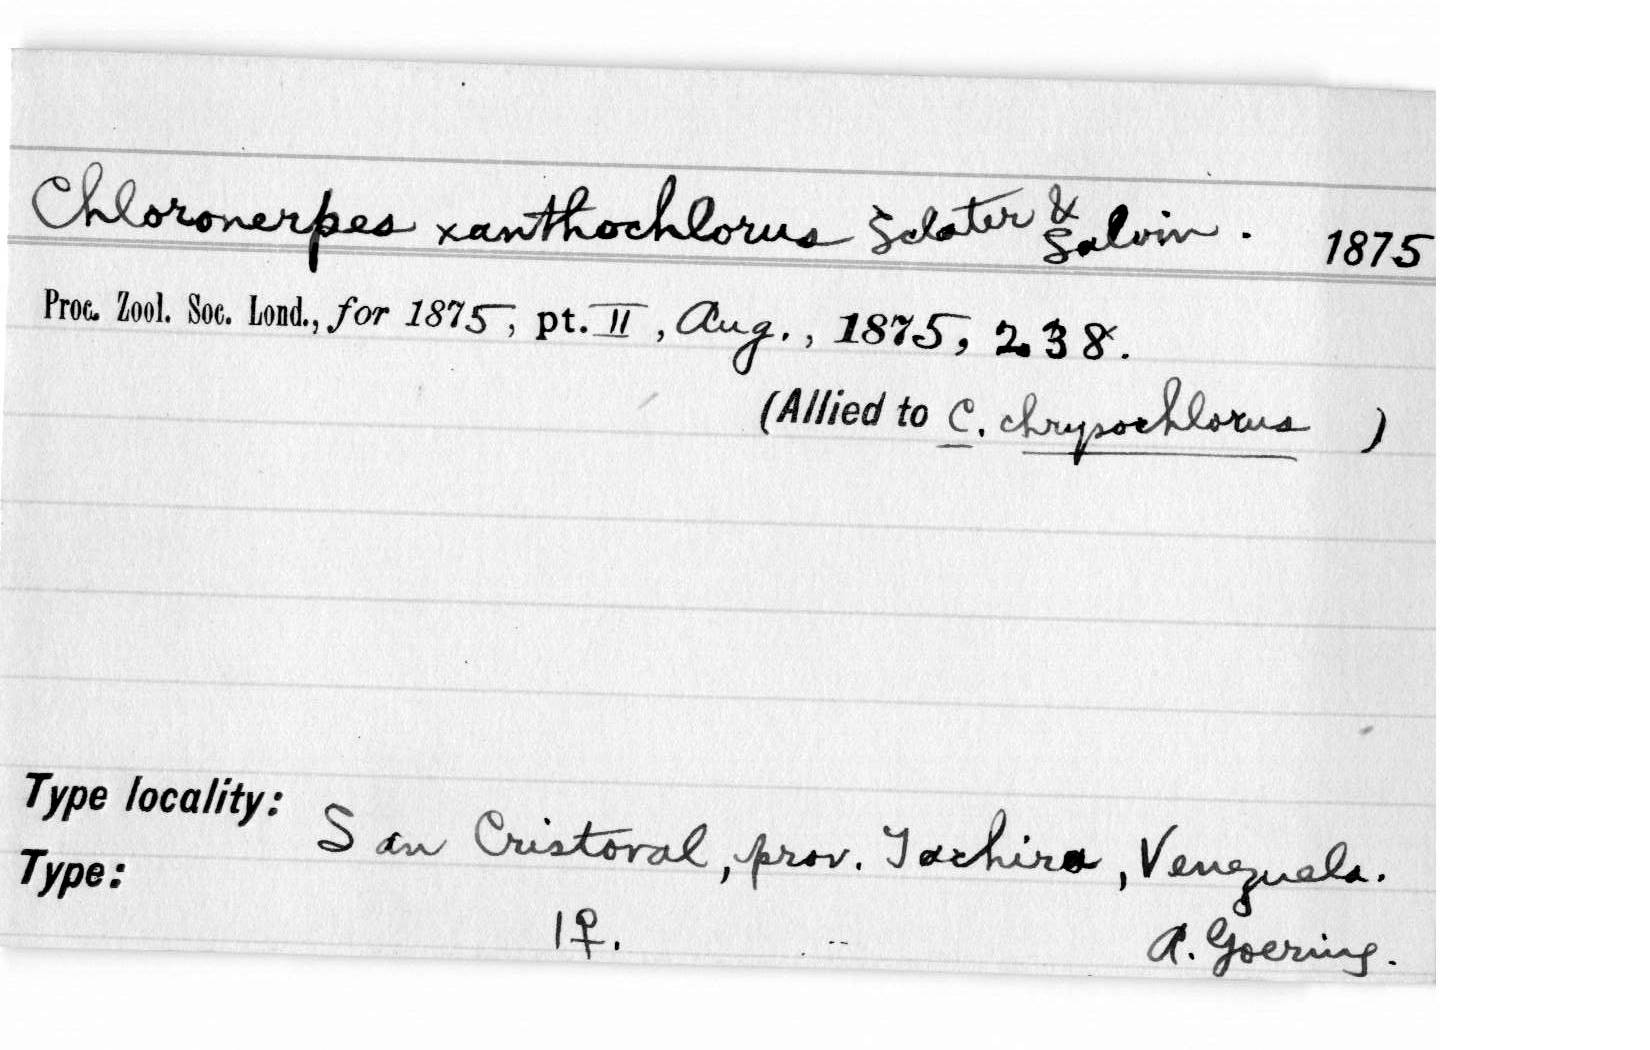 Chloronerpes xanthochlorus Sclater & Salvin. 1875
Proc. Zool. Soc. Lond., for 1875, pt. II, Aug., 1875, 238.
(Allied to C. chrysochlorus )
Type locality: San Cristoval, prov. Tachira, Venezuela.
Type: 1♀. A. Goering.